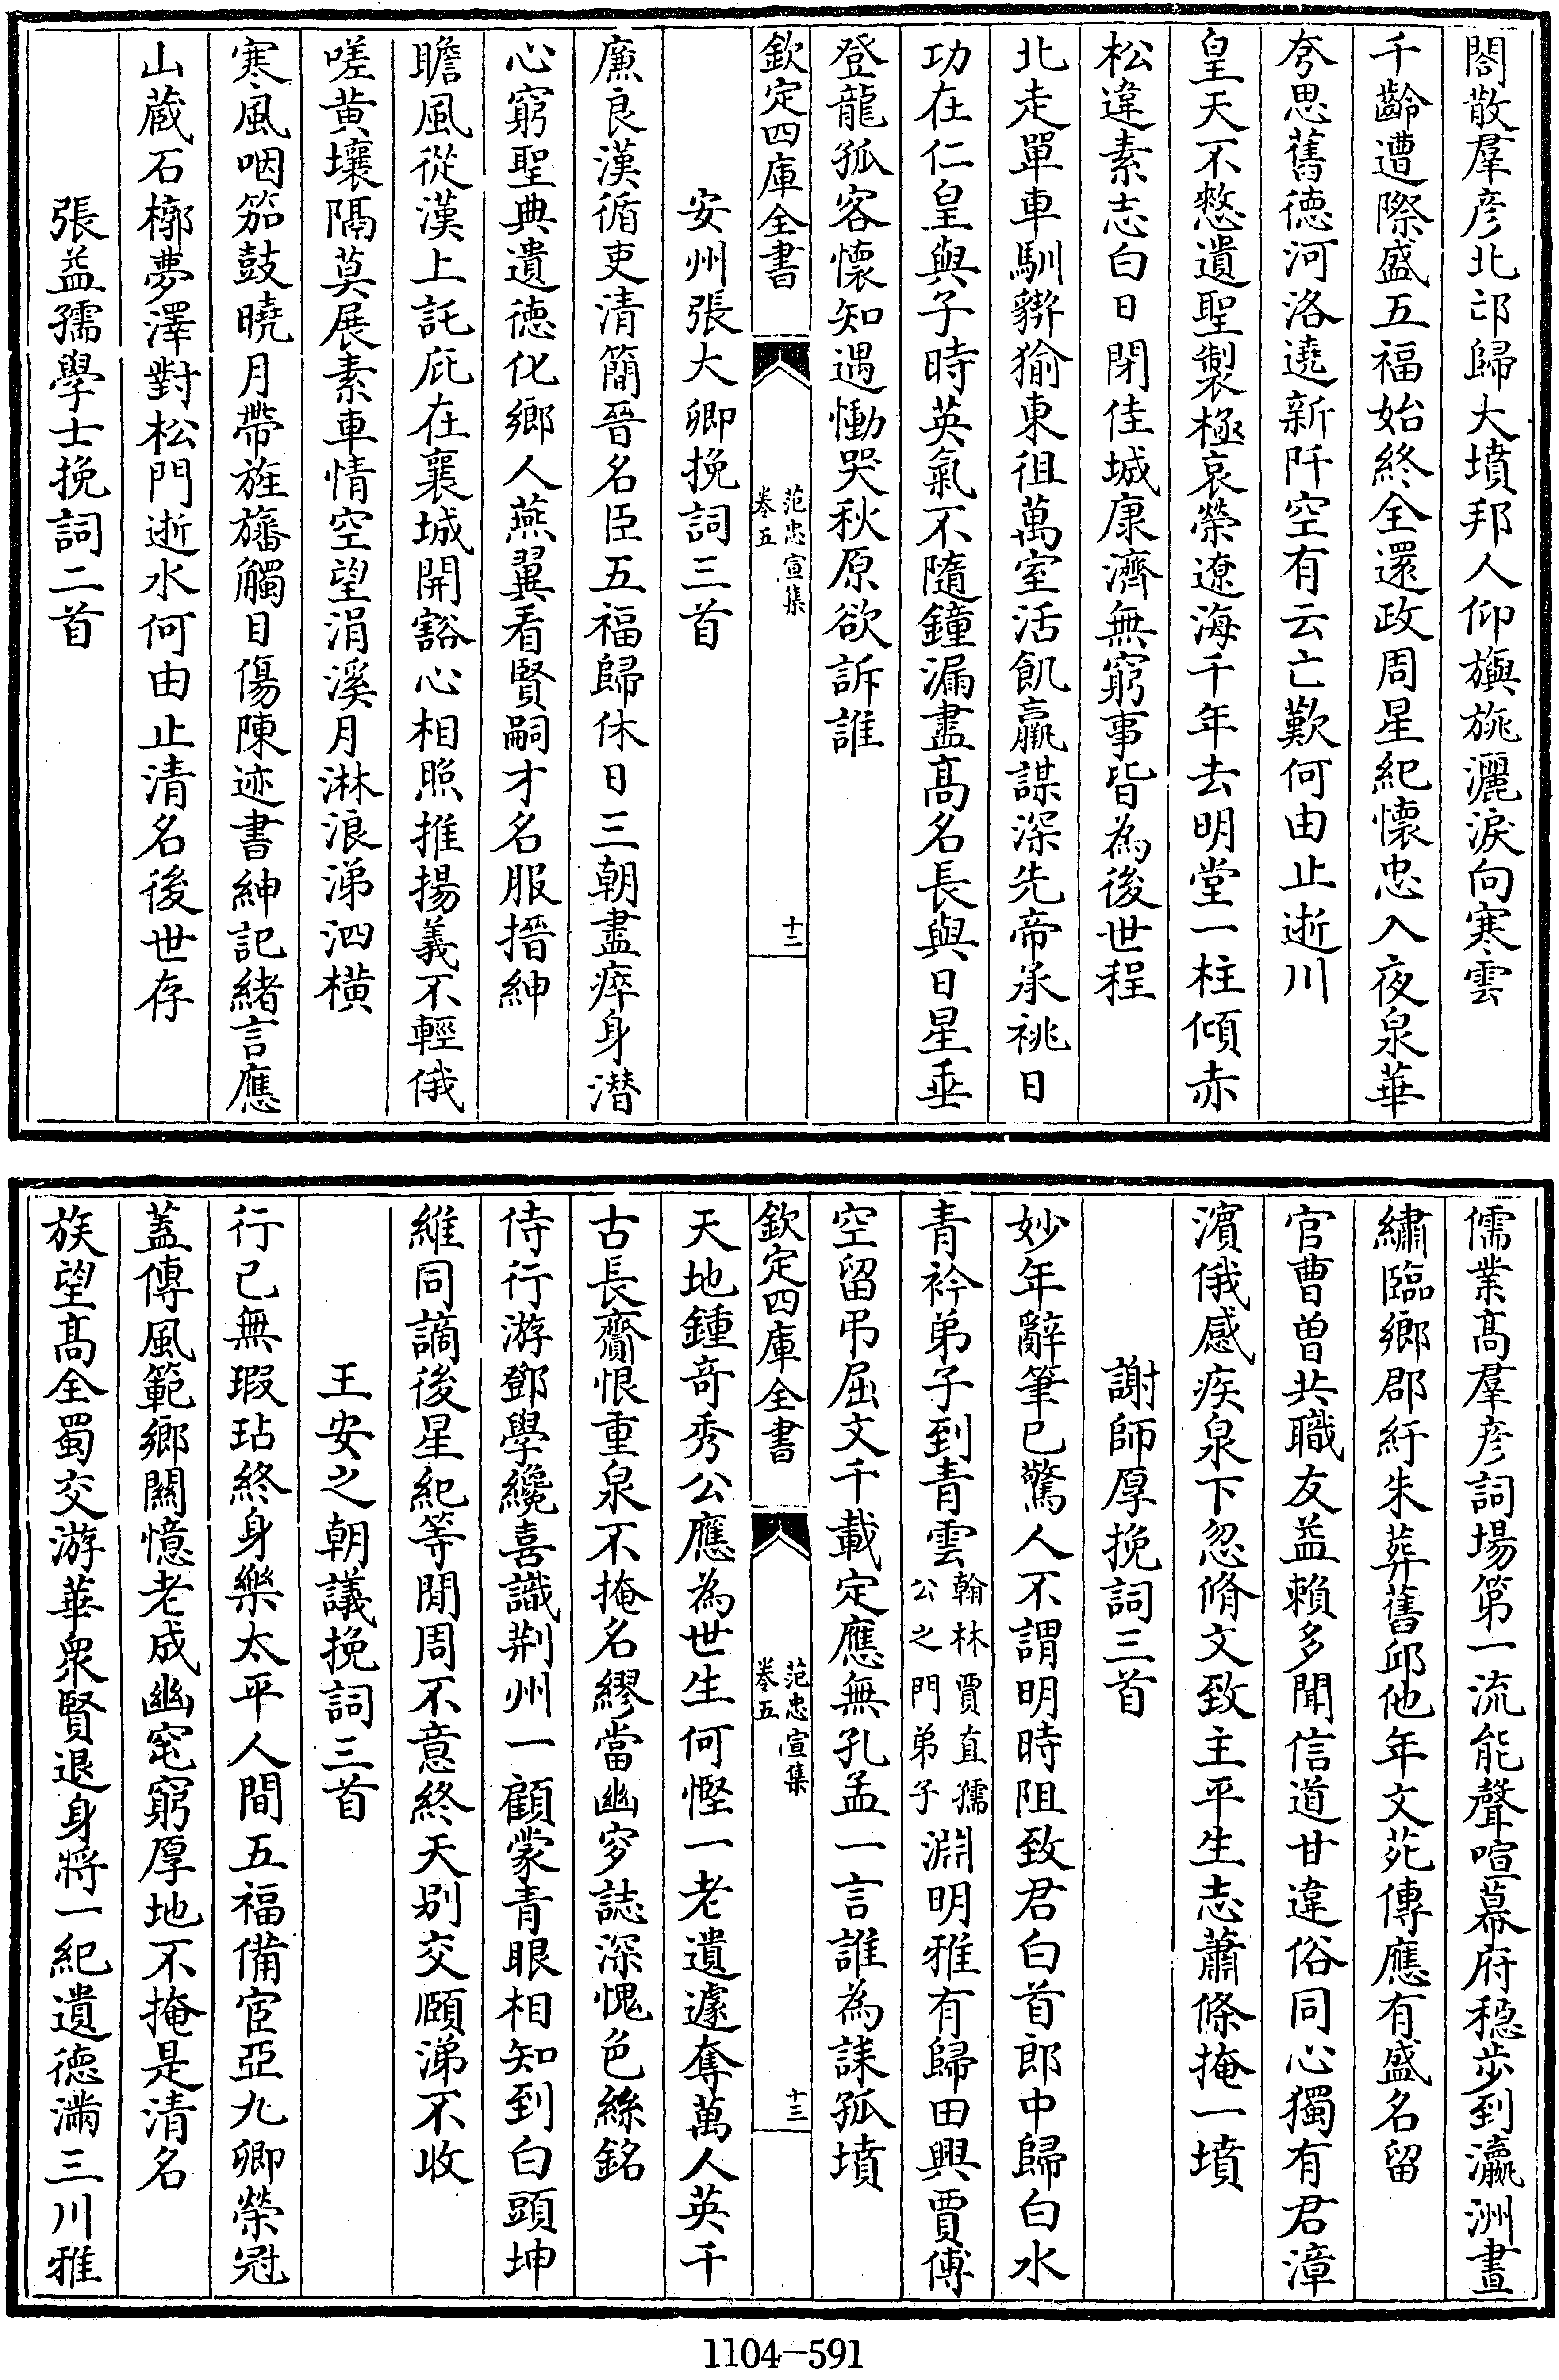 閤散羣彦北邙歸大墳邦人仰旟旐灑淚向寒雲
千齡遭際盛五福始終全還政周星紀懷忠入夜泉華
夸思舊徳河洛遶新阡空有云亡歎何由止逝川
皇天不憖遺聖製極哀榮遼海千年去明堂一柱傾赤
松違素志白日閉佳城康濟無窮事皆為後世程
北走單車馴貏貐東徂萬室活飢羸謀深先帝承祧日
功在仁皇與子時英氣不隨鐘漏盡髙名長與日星垂
登龍孤客懷知遇慟哭秋原欲訴誰
欽定四庫全書
范忠宣集
卷五
十二
安州張大卿挽詞三首
亷良漢循吏清簡晉名臣五福歸休日三朝盡瘁身潜
心窮聖典遺徳化鄉人燕翼看賢嗣才名服搢紳
瞻風從漢上託庇在襄城開豁心相照推揚義不輕俄
嗟黄壤隔莫展素車情空望涓溪月淋浪涕泗横
寒風咽笳鼓曉月帶旌旛觸目傷陳迹書紳記緒言應
山蔵石槨夢澤對松門逝水何由止清名後世存
張益孺學士挽詞二首
儒業髙羣彦詞場第一流能聲喧幕府穏步到瀛洲晝
繡臨鄉郡紆朱葬舊邱他年文苑傳應有盛名留
官曹曽共職友益賴多聞信道甘違俗同心獨有君漳
濵俄感疾泉下忽脩文致主平生志蕭條掩一墳
謝師厚挽詞三首
妙年辭筆已驚人不謂明時阻致君白首郎中歸白水
青衿弟子到青雲翰林賈直孺公之門弟子淵明雅有歸田興賈傅
空留弔屈文千載定應無孔孟一言誰為誄孤墳
欽定四庫全書
范忠宣集
卷五
十三
天地鍾奇秀公應為世生何慳一老遺遽奪萬人英千
古長齎恨重泉不掩名繆當幽穸誌深愧色絲銘
侍行游鄧學纔喜識荆州一顧蒙青眼相知到白頭坤
維同謫後星紀等閒周不意終天别交頤涕不收
王安之朝議挽詞三首
行己無瑕玷終身樂太平人間五福備宦亞九卿榮冠
蓋傳風範鄉闗憶老成幽窀窮厚地不掩是清名
族望髙全蜀交游華衆賢退身將一紀遺徳滿三川雅
1104-591